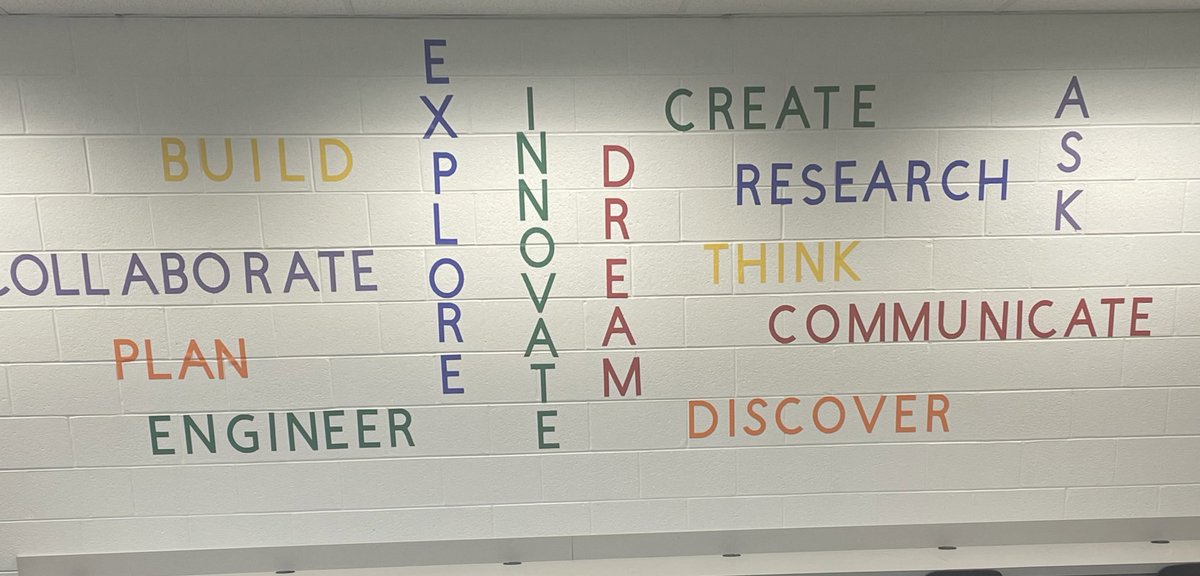 BUILD
COLLABORATE
PLAN
ENGINEER
EXPLORE
INNOVATE
DREAM
CREATE
RESEARCH
THINK
COMMUNICATE
DISCOVER
ASK